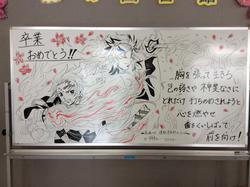 卒業
おめでとう!!
胸を張って生きろ
己の弱さや 不甲斐なさに
どれだけ 打ちのめされようと
心を燃やせ
歯をくいしばって
前を向け!